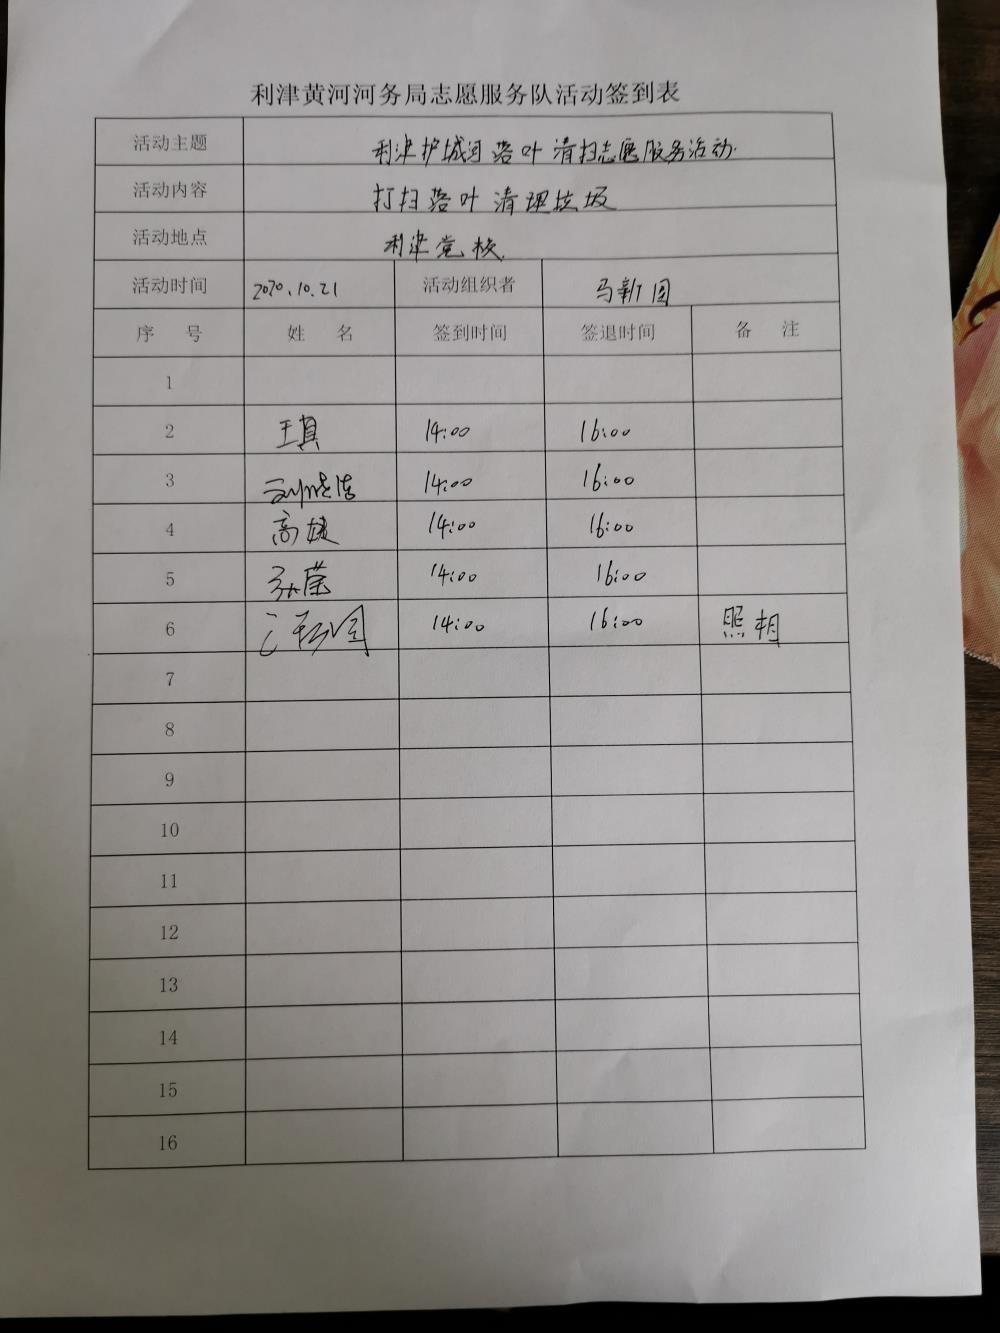 利津黄河河务局志愿服务队活动签到表
活动主题 利津护城河落叶清扫志愿服务活动.
活动内容 打扫落叶清理垃圾
活动地点 利津党校.
活动时间 2020.10.21 活动组织者 马新国
序 号 姓 名 签到时间 签退时间 备 注
1
2 王真 14:00 16:00
3 14:00 16:00
4 高婕 14:00 16:00
5 孙莹 14:00 16:00
6 14:00 16:00 照相
7
8
9
10
11
12
13
14
15
16